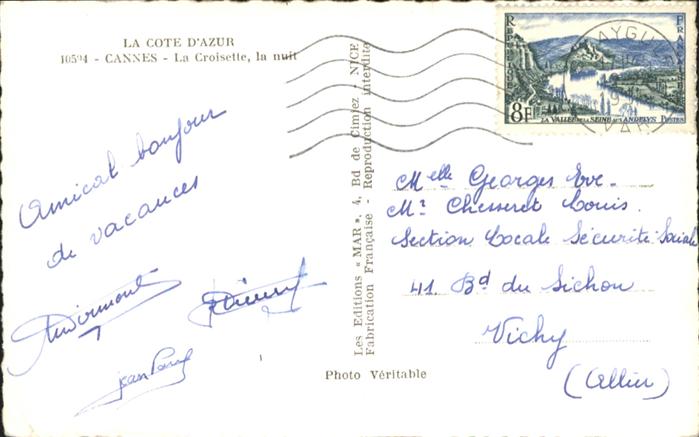 LA COTE D'AZUR
10594 - CANNES - La Croisette, la nuit
Amical bonjour
de vacances
Jean Paul
Les Editions "MAR", 4, Bd de Cimiez, - NICE
Fabrication Française - Reproduction interdite
Photo Véritable
REPUBLIQUE
FRANÇAISE
8F
LA VALLEE DE LA SEINE AUX ANDELYS POSTES
VAR
Melle Georges Eve.
Mr Chesseret Louis.
Section Locale Sécurité Sociale
41 Bd du Sichon
Vichy
(Allier)